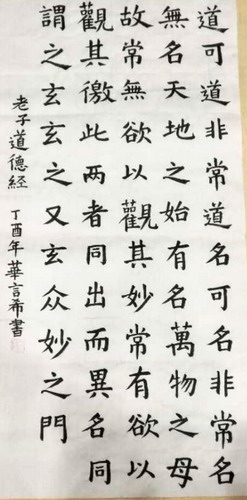 道可道非常道名可名非常名
無名天地之始有名萬物之母
故常無欲以觀其妙常有欲以
觀其徼此两者同出而異名同
謂之玄玄之又玄众妙之門
老子道德經 丁酉年華言希書